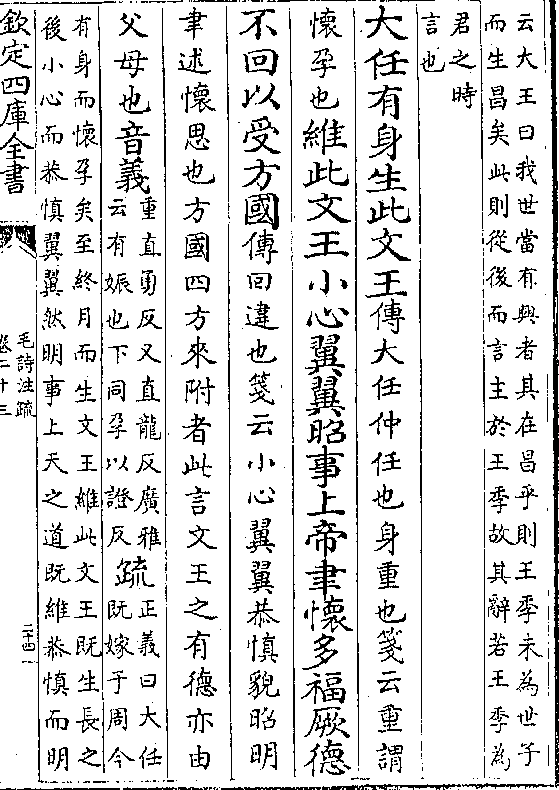 云大王曰我世當有興者其在昌乎則王季未為世子
而生昌矣此則從後而言主於王季故其辭若王季為
君之時
言也
大任有身生此文王傳大任仲任也身重也箋云重謂
懷孕也維此文王小心翼翼昭事上帝聿懷多福厥德
不回以受方國傳回違也箋云小心翼翼恭慎貌昭明
聿述懷思也方國四方來附者此言文王之有德亦由
父母也音義重直勇反又直龍反廣雅
云有娠也下同孕以證反疏正義曰大任
既嫁于周今
有身而懷孕矣至終月而生文王維此文王既生長之
後小心而恭慎翼翼然明事上天之道既維恭慎而明
欽定四庫全書
毛詩注疏
卷二十三
二十四